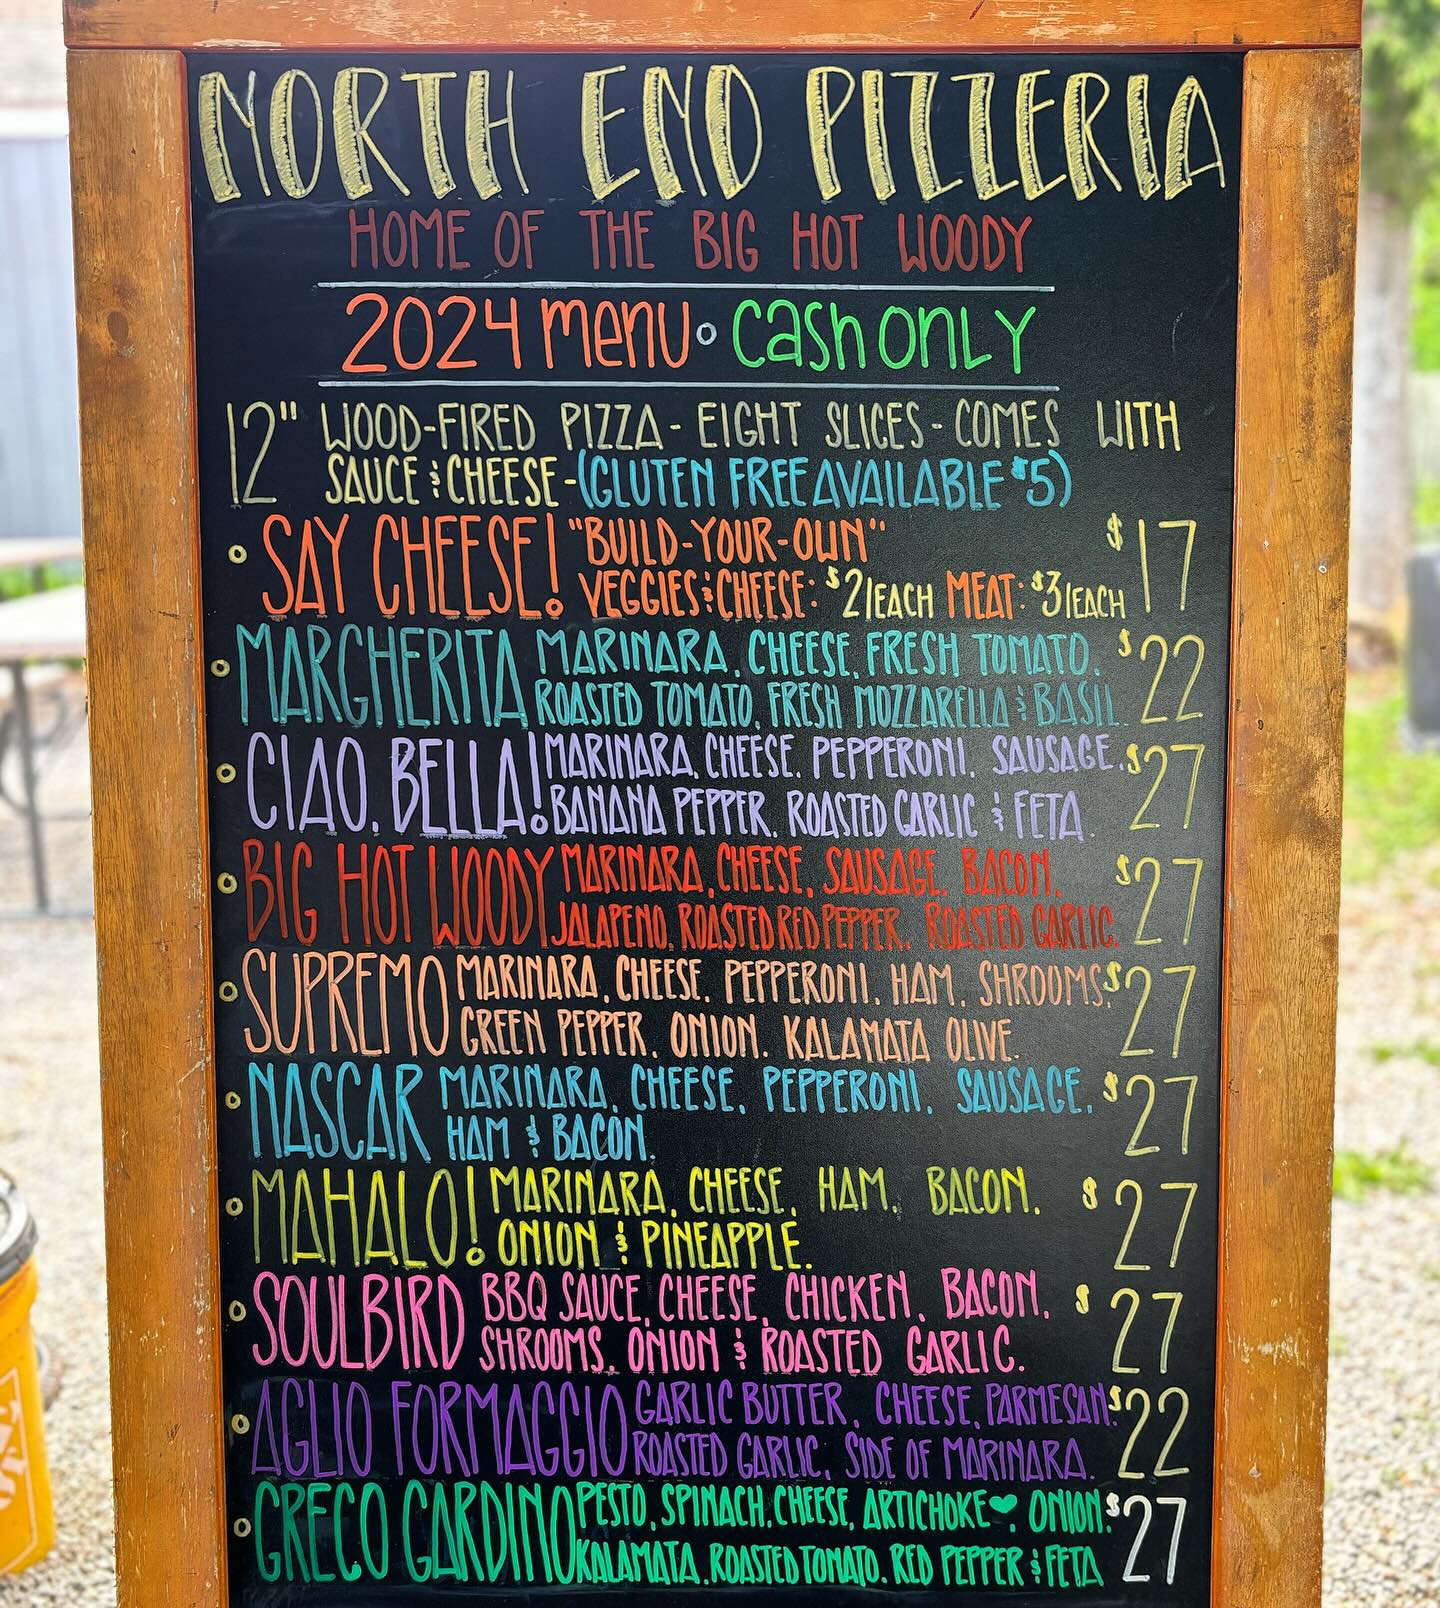 NORTH END PIZZERIA
HOME OF THE BIG HOT WOODY
2024 menu ° cash only
12" WOOD-FIRED PIZZA - EIGHT SLICES - COMES WITH
SAUCE & CHEESE - (GLUTEN FREE AVAILABLE $5)
° SAY CHEESE! "BUILD-YOUR-OWN" $17
VEGGIES & CHEESE: $2/EACH MEAT: $3/EACH
° MARGHERITA MARINARA, CHEESE, FRESH TOMATO, $22
ROASTED TOMATO, FRESH MOZZARELLA & BASIL.
° CIAO, BELLA! MARINARA, CHEESE, PEPPERONI, SAUSAGE, $27
BANANA PEPPER, ROASTED GARLIC & FETA.
° BIG HOT WOODY MARINARA, CHEESE, SAUSAGE, BACON, $27
JALAPENO, ROASTED RED PEPPER, ROASTED GARLIC.
° SUPREMO MARINARA, CHEESE, PEPPERONI, HAM, SHROOMS, $27
GREEN PEPPER, ONION, KALAMATA OLIVE.
° NASCAR MARINARA, CHEESE, PEPPERONI, SAUSAGE, $27
HAM & BACON.
° MAHALO! MARINARA, CHEESE, HAM, BACON, $27
ONION & PINEAPPLE.
° SOULBIRD BBQ SAUCE, CHEESE, CHICKEN, BACON, $27
SHROOMS, ONION & ROASTED GARLIC.
° AGLIO FORMAGGIO GARLIC BUTTER, CHEESE, PARMESAN, $22
ROASTED GARLIC, SIDE OF MARINARA.
° GRECO GARDINO PESTO, SPINACH, CHEESE, ARTICHOKE ♥, ONION, $27
KALAMATA, ROASTED TOMATO, RED PEPPER & FETA